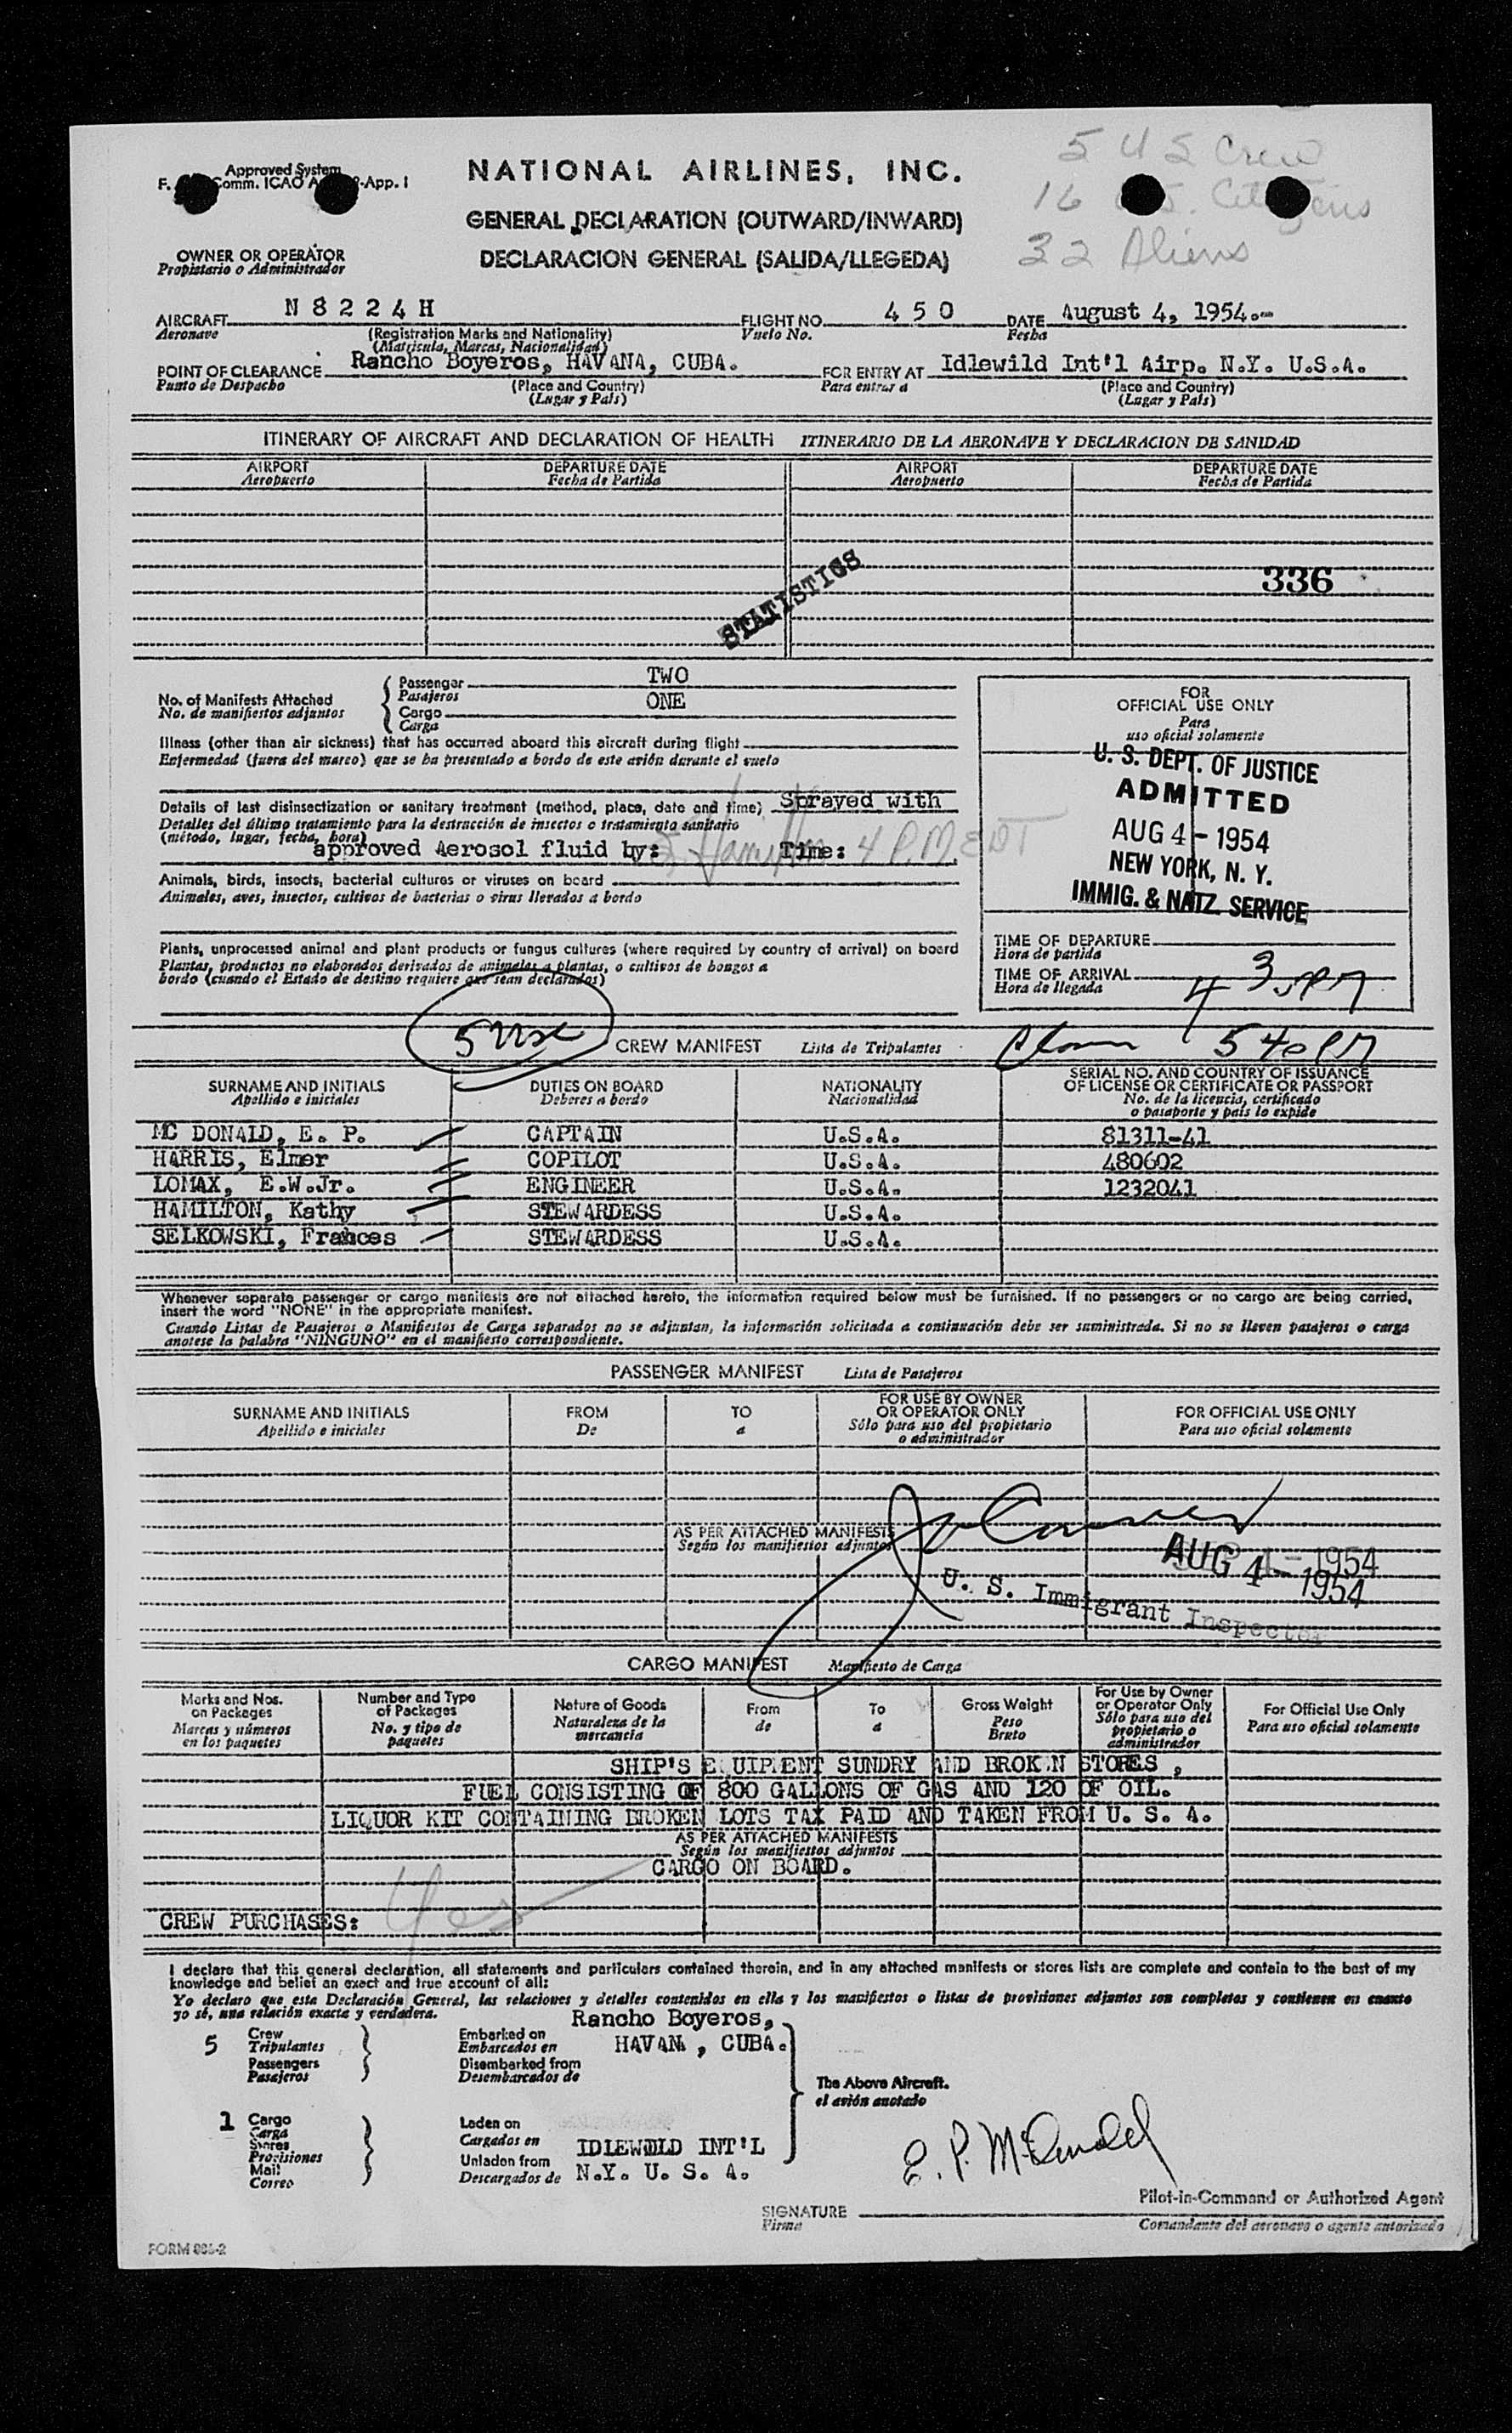 5 US Crew
Approved System
NATIONAL AIRLINES, INC.
F. Comm. ICAO A -App. I
16 U.S. Citizens
GENERAL DECLARATION (OUTWARD/INWARD)
32 Aliens
OWNER OR OPERATOR
Propietario o Administrador
DECLARACION GENERAL (SALIDA/LLEGEDA)
AIRCRAFT N 8 2 2 4 H FLIGHT NO. 4 5 0 DATE August 4, 1954.-
Aeronave (Registration Marks and Nationality) Vuelo No. Fecha
(Matricula, Marcas, Nacionalidad)
POINT OF CLEARANCE Rancho Boyeros, HAVANA, CUBA. FOR ENTRY AT Idlewild Int'l Airp. N.Y. U.S.A.
Punto de Despacho (Place and Country) Para entrar a (Place and Country)
(Lugar y País) (Lugar y País)
ITINERARY OF AIRCRAFT AND DECLARATION OF HEALTH ITINERARIO DE LA AERONAVE Y DECLARACION DE SANIDAD
AIRPORT DEPARTURE DATE AIRPORT DEPARTURE DATE
Aeropuerto Fecha de Partida Aeropuerto Fecha de Partida
336
STATISTICS
No. of Manifests Attached Passenger TWO
No. de manifiestos adjuntos Pasajeros
Cargo ONE
Carga
FOR
OFFICIAL USE ONLY
Para
uso oficial solamente
Illness (other than air sickness) that has occurred aboard this aircraft during flight
Enfermedad (fuera del mareo) que se ha presentado a bordo de este avión durante el vuelo
U. S. DEPT. OF JUSTICE
ADMITTED
AUG 4 - 1954
NEW YORK, N. Y.
IMMIG. & NATZ. SERVICE
Details of last disinsectization or sanitary treatment (method, place, date and time) Sprayed with
Detalles del último tratamiento para la destrucción de insectos o tratamiento sanitario
(método, lugar, fecha, hora)
approved Aerosol fluid by: Hamilton Time: 4 P.M EDT
Animals, birds, insects, bacterial cultures or viruses on board
Animales, aves, insectos, cultivos de bacterias o virus llevados a bordo
Plants, unprocessed animal and plant products or fungus cultures (where required by country of arrival) on board
Plantas, productos no elaborados derivados de animales a plantas, o cultivos de hongos a
bordo (cuando el Estado de destino requiere que sean declarados)
TIME OF DEPARTURE
Hora de partida
TIME OF ARRIVAL 4 3 PM
Hora de llegada
5 usc
CREW MANIFEST Lista de Tripulantes 5 40 PM
SURNAME AND INITIALS DUTIES ON BOARD NATIONALITY SERIAL NO. AND COUNTRY OF ISSUANCE
OF LICENSE OR CERTIFICATE OR PASSPORT
Apellido e iniciales Deberes a bordo Nacionalidad No. de la licencia, certificado
o pasaporte y país lo expide
MC DONALD, E. P. CAPTAIN U.S.A. 81311-41
HARRIS, Elmer COPILOT U.S.A. 480602
LOMAX, E.W.Jr. ENGINEER U.S.A. 1232041
HAMILTON, Kathy STEWARDESS U.S.A.
SELKOWSKI, Frances STEWARDESS U.S.A.
Whenever separate passenger or cargo manifests are not attached hereto, the information required below must be furnished. If no passengers or no cargo are being carried,
insert the word "NONE" in the appropriate manifest.
Cuando Listas de Pasajeros o Manifiestos de Carga separados no se adjuntan, la información solicitada a continuación debe ser suministrada. Si no se lleven pasajeros o carga
anotese la palabra "NINGUNO" en el manifiesto correspondiente.
PASSENGER MANIFEST Lista de Pasajeros
SURNAME AND INITIALS FROM TO FOR USE BY OWNER
OR OPERATOR ONLY FOR OFFICIAL USE ONLY
Apellido e iniciales De a Sólo para uso del propietario
o administrador Para uso oficial solamente
AS PER ATTACHED MANIFESTS
Según los manifiestos adjuntos
AUG 4 - 1954
1954
U. S. Immigrant Inspector
CARGO MANIFEST Manifiesto de Carga
Marks and Nos.
on Packages
Marcas y números
en los paquetes
Number and Type
of Packages
No. y tipo de
paquetes
Nature of Goods
Naturaleza de la
mercancia
From
de
To
a
Gross Weight
Peso
Bruto
For Use by Owner
or Operator Only
Sólo para uso del
propietario o
administrador
For Official Use Only
Para uso oficial solamente
SHIP'S E UIPMENT SUNDRY AND BROK N STORES ,
FUEL CONSISTING OF 800 GALLONS OF GAS AND 120 OF OIL.
LIQUOR KIT CONTAINING BROKEN LOTS TAX PAID AND TAKEN FROM U. S. A.
AS PER ATTACHED MANIFESTS
Según los manifiestos adjuntos
CARGO ON BOARD.
CREW PURCHASES: Yes
I declare that this general declaration, all statements and particulars contained therein, and in any attached manifests or stores lists are complete and contain to the best of my
knowledge and belief an exact and true account of all:
Yo declaro que esta Declaración General, las relaciones y detalles contenidos en ella y los manifiestos o listas de provisiones adjuntos son completos y contienen en cuanto
yo sé, una relación exacta y verdadera.
5 Crew
Tripulantes
Passengers
Pasajeros
Embarked on Rancho Boyeros,
Embarcados en HAVANA , CUBA.
Disembarked from
Desembarcados de
The Above Aircraft.
el avión anotado
1 Cargo
Carga
Stores
Provisiones
Mail
Correo
Laden on
Cargados en IDLEWILD INT'L
Unladen from
Descargados de N.Y. U. S. A.
E. P. McDonald
SIGNATURE
Firma
Pilot-in-Command or Authorized Agent
Comandante del aeronave o agente autorizado
FORM 085-2